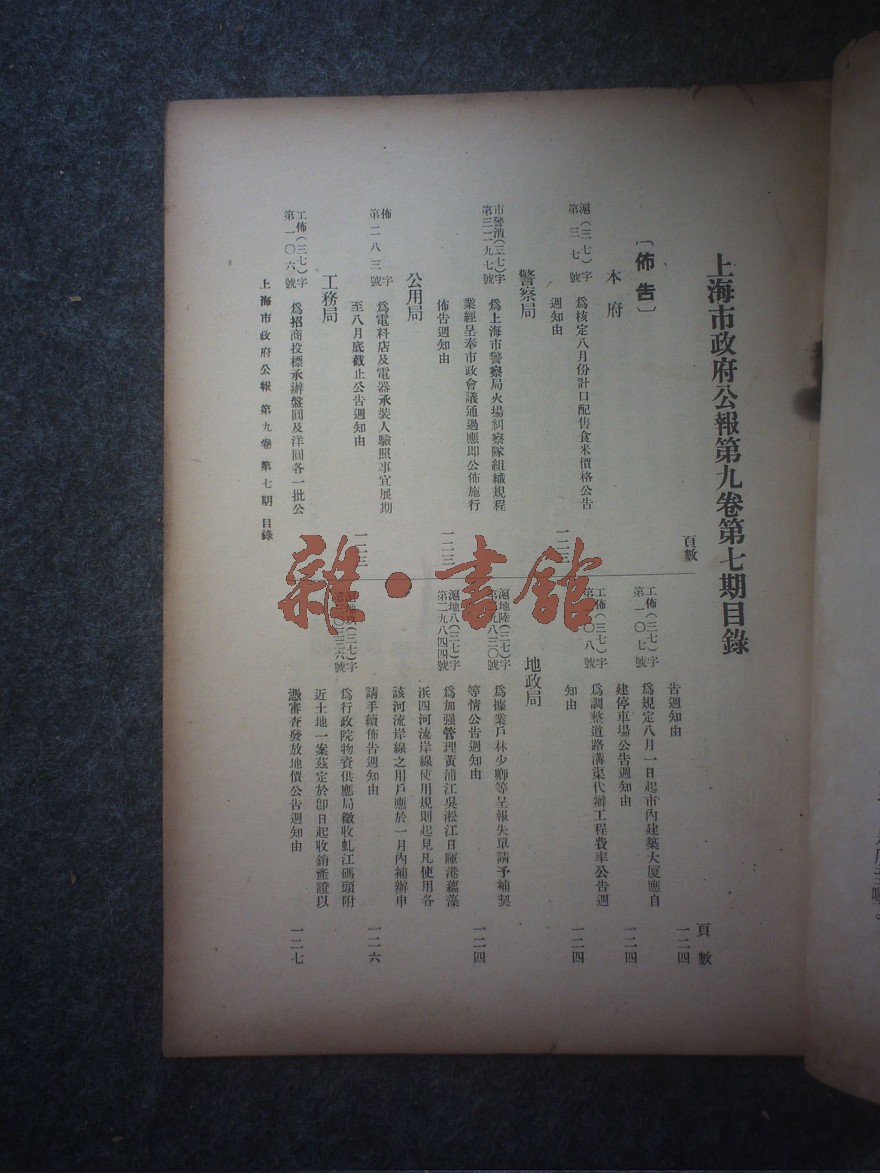 上海市政府公報第九卷第七期目錄
頁數
〔佈告〕
本府
滬(三七)字
第三七號
為核定八月份計口配售食米價格公告
週知由
一二三
警察局
市警消(三七)字
第三二九七號
為上海市警察局火場糾察隊組織規程
業經呈奉市政會議通過應即公佈施行
佈告週知由
一二三
公用局
佈字
第二八三號
為電料店及電器承裝人驗照事宜展期
至八月底截止公告週知由
一二三
工務局
工佈(三七)字
第一〇六號
為招商投標承辦盤圓及洋圓各一批公
頁數
告週知由
一二四
工佈(三七)字
第一〇七號
為規定八月一日起市內建築大厦應自
建停車場公告週知由
一二四
工佈(三七)字
第一〇八號
為調整道路溝渠代辦工程費率公告週
知由
一二四
地政局
滬地陸(三七)字
為據業戶林少卿等呈報失單請予補契
等情公告週知由
一二四
滬地八(三七)字
第二九八四四號
為加强管理黃浦江吳淞江日暉港蘊藻
浜四河流岸線使用規則起見凡使用各
該河流岸線之用戶應於一月內補辦申
請手續佈告週知由
一二六
為行政院物資供應局徵收虬江碼頭附
近土地一案茲定於即日起收銷產證以
憑審查發放地價公告週知由
一二七
上海市政府公報 第九卷 第七期 目錄
雜·書館